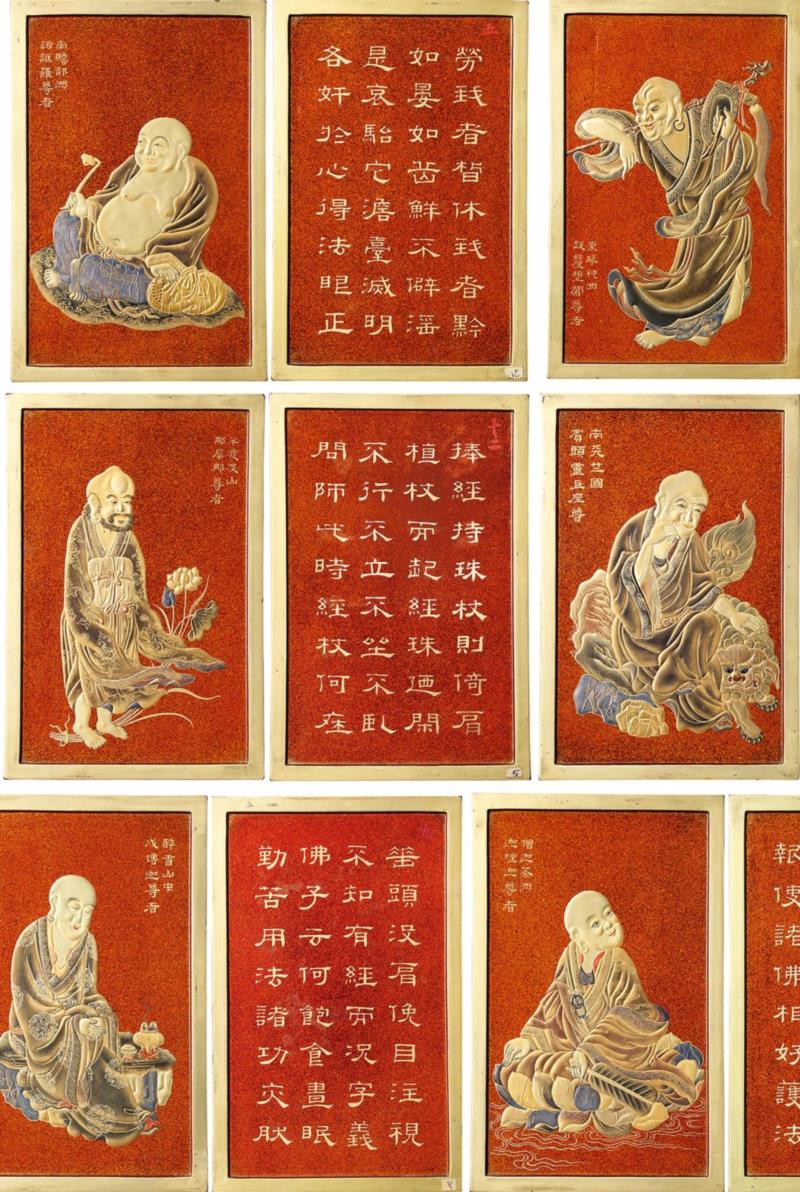 南瞻部洲
諾詎羅尊者
五
勞我者皙休我者黔
如晏如岳鮮不僻淫
是哀駘它澹臺滅明
各妍於心得法眼正
東勝神洲
跋釐墮闍尊者
半度波山
那犀那尊者
十二
捧經持珠杖則倚肩
植杖而起經珠迺閑
不行不立不坐不臥
問師此時經杖何在
5
南天竺國
賓頭盧旦座尊
醉香山中
戍博迦尊者
垂頭沒肩俛目注視
不知有經而況字義
佛子云何飽食晝眠
勤苦用法諸功亦肰
僧迦荼洲
迦理迦尊者
報使諸佛相好護法